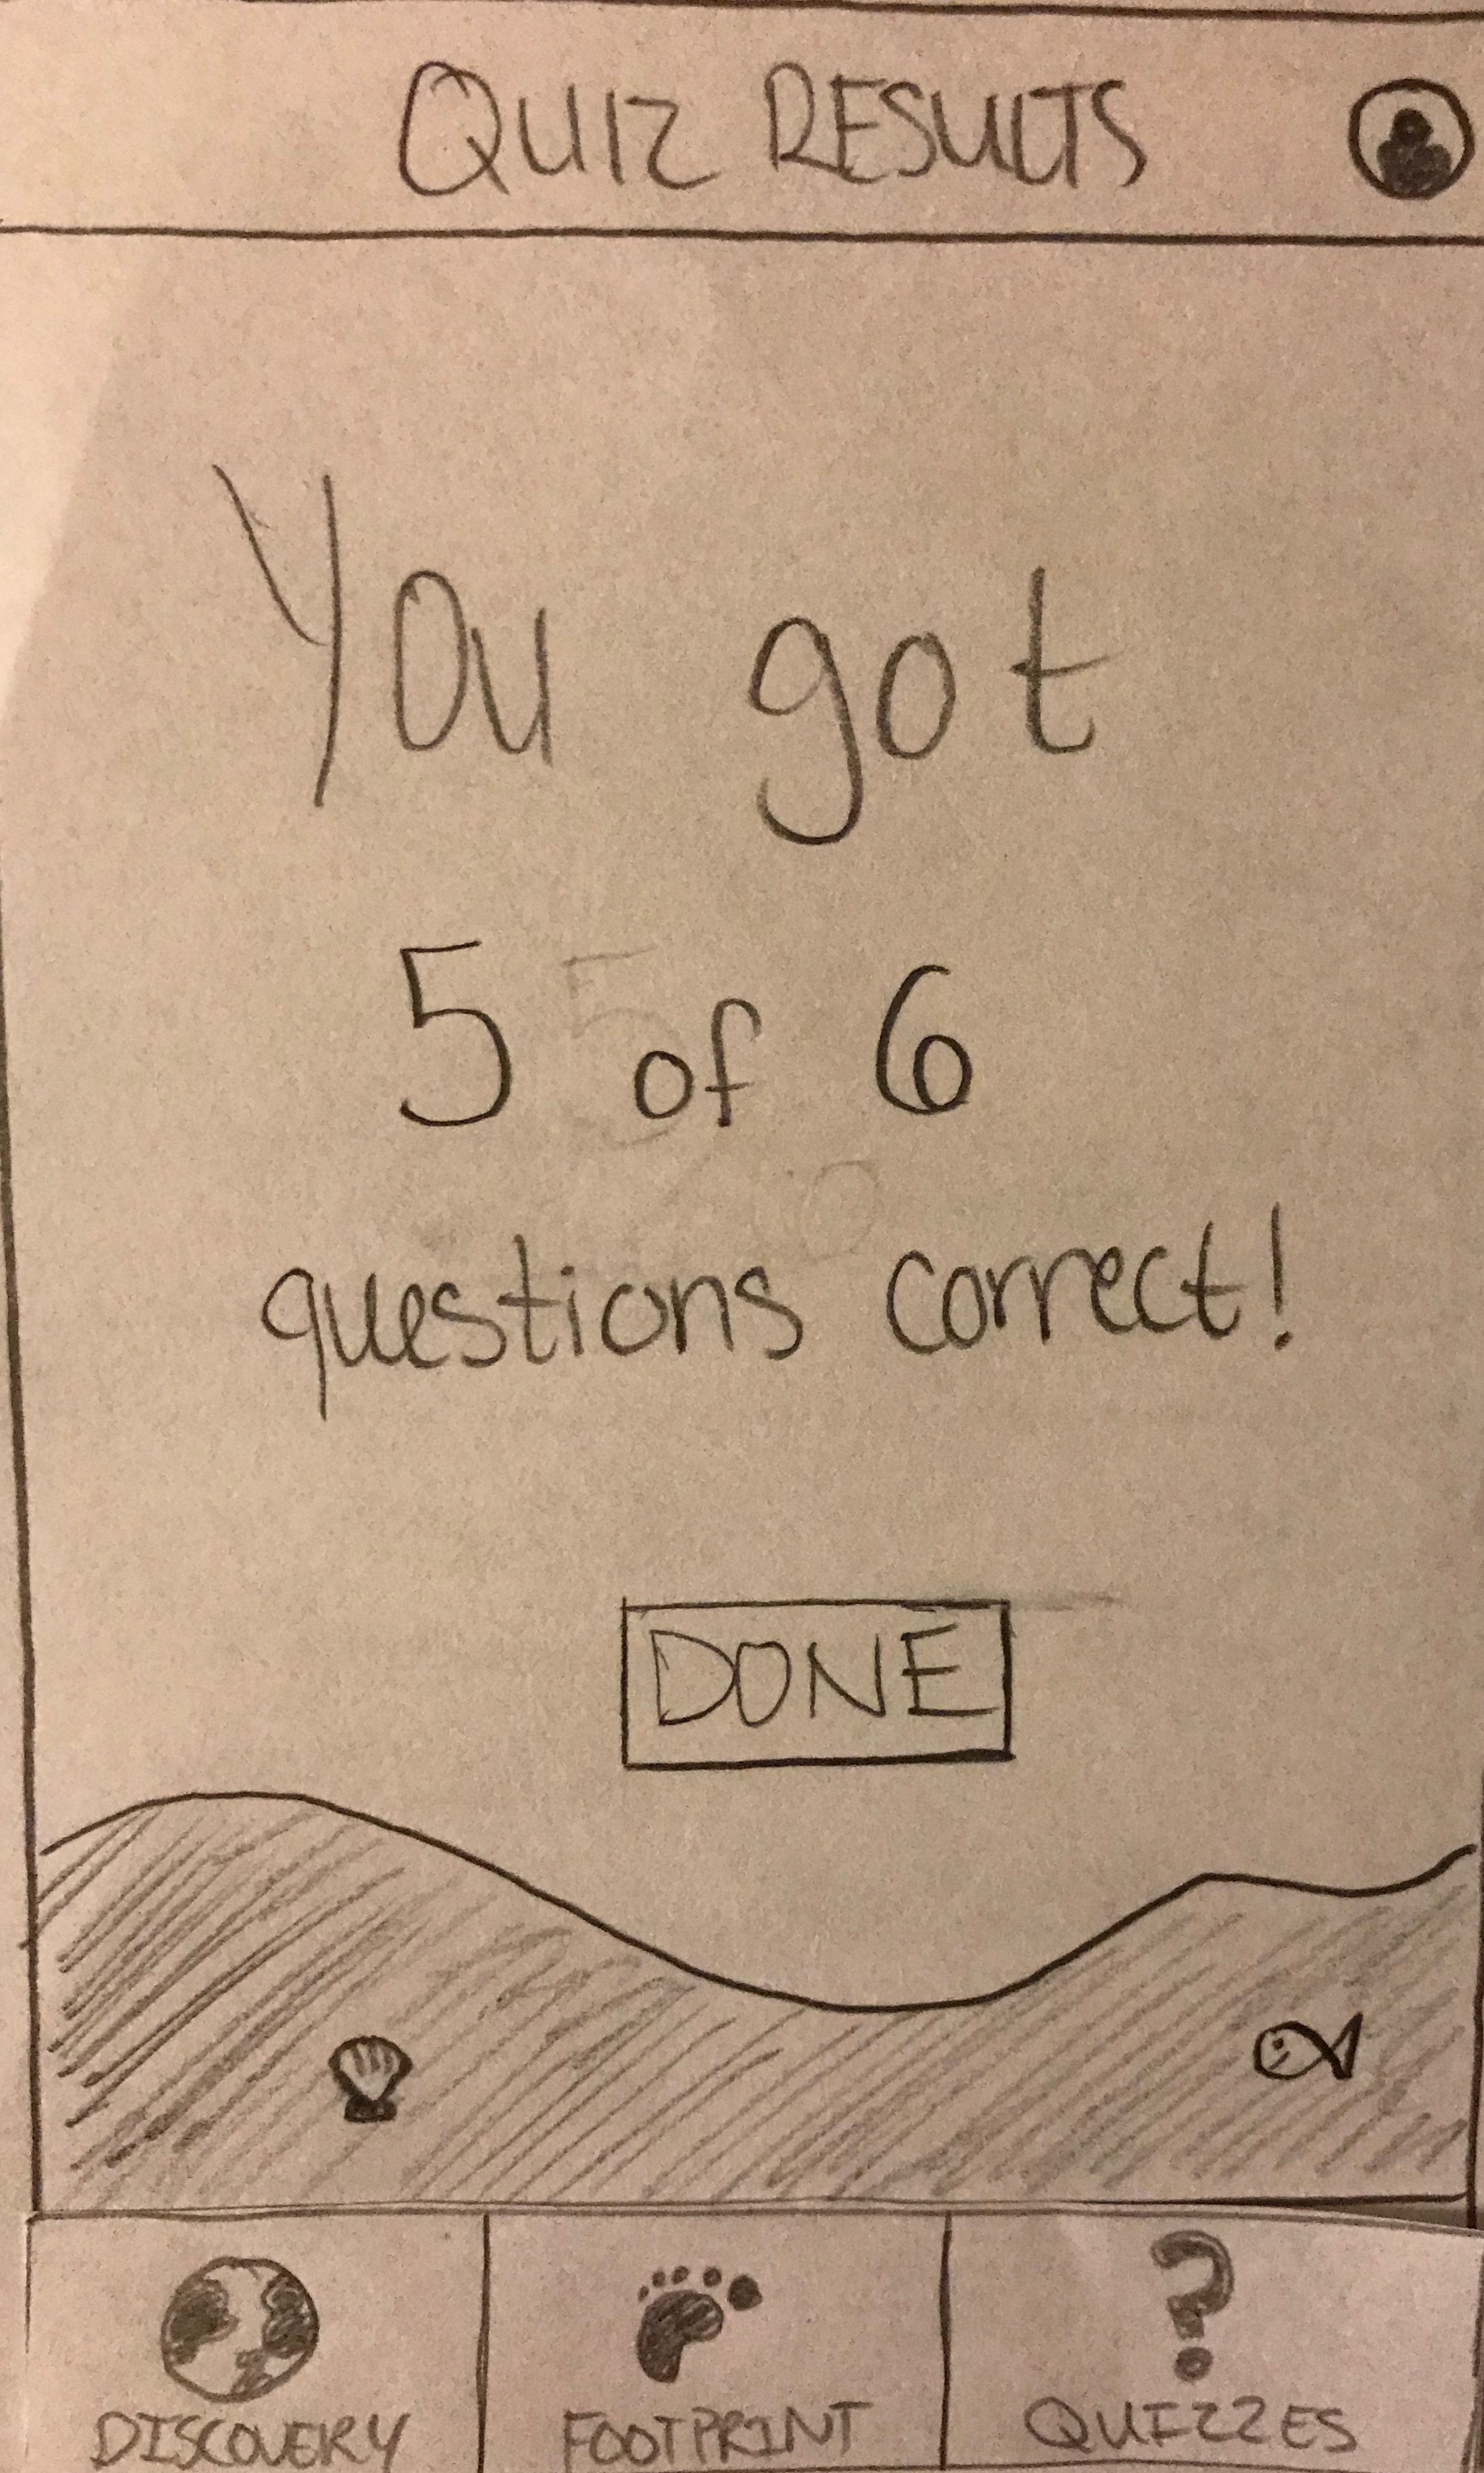 QUIZ RESULTS
You got
5 of 6
questions correct!
DONE
DISCOVERY FOOTPRINT QUIZZES